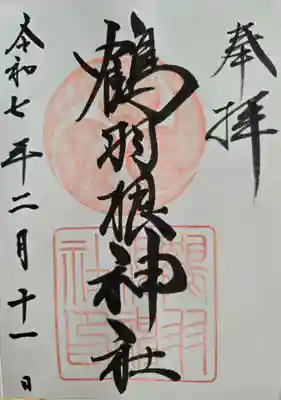 奉拝
鶴羽根神社
令和七年二月十一日
鶴羽根神社印